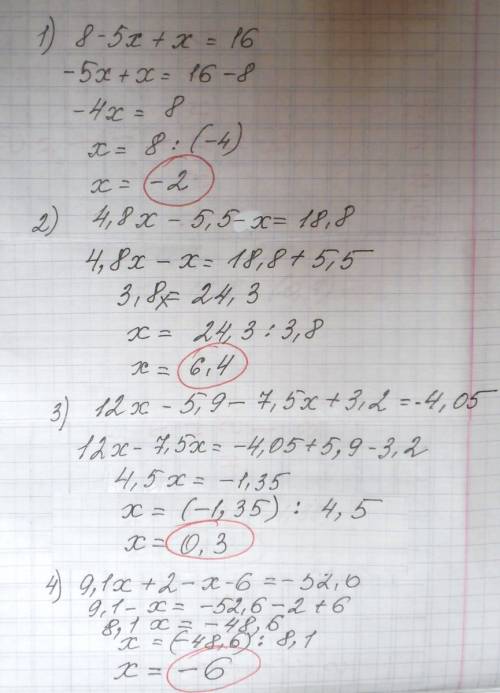 1) 8-5x+x=16
-5x+x=16-8
-4x=8
x=8:(-4)
x=-2
2) 4,8x-5,5-x=18,8
4,8x-x=18,8+5,5
3,8x=24,3
x=24,3:3,8
x=6,4
3) 12x-5,9-7,5x+3,2=-4,05
12x-7,5x=-4,05+5,9-3,2
4,5x=-1,35
x=(-1,35):4,5
x=0,3
4) 9,1x+2-x-6=-52,6
9,1-x=-52,6-2+6
8,1x=-48,6
x=(-48,6):8,1
x=-6